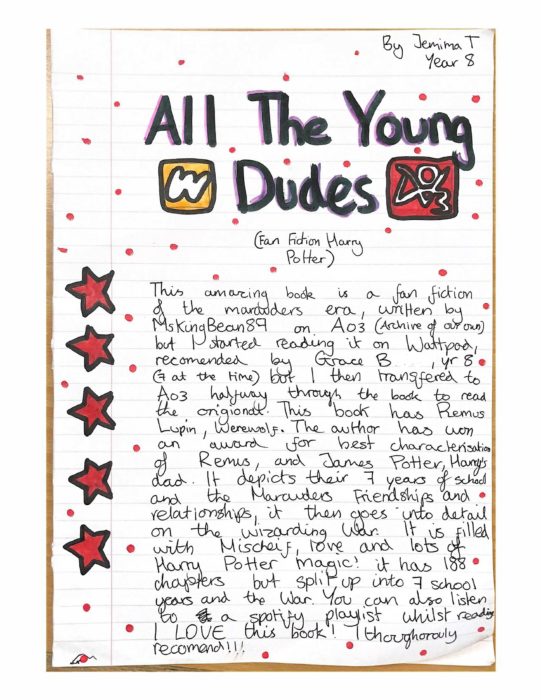 By Jemima T
Year 8
All The Young
Dudes
(Fan Fiction Harry
Potter)
This amazing book is a fan fiction
of the marauders era, written by
MsKingBean89 on Ao3 (Archive of our own)
but I started reading it on Wattpad,
recomended by Grace B , yr 8
(7 at the time) but I then transfered to
Ao3 halfway through the book to read
the origional. This book has Remus
Lupin, werewolf. The author has won
an award for best characterisation
of Remus, and James Potter, Harry's
dad. It depicts their 7 years of school
and the Marauders Friendships and
relationships, it then goes into detail
on the wizarding War. It is filled
with Mischeif, love and lots of
Harry Potter magic! it has 188
chapters but split up into 7 school
years and the War. You can also listen
to a spotify playlist whilst reading
I LOVE this book! I thoughorouly
recomend!!!